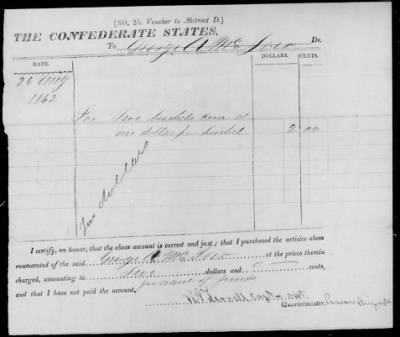 [NO. 25. Voucher to Abstract D.]
THE CONFEDERATE STATES,
To George A Mc Dr.
DATE. DOLLARS. CENTS.
26 Aug
1862
For Two bushels corn at
one dollar per bushel 2 00
Two
I certify, on honor, that the above account is correct and just; that I purchased the articles above
enumerated of the said George A Mc at the prices therein
charged, amounting to Two dollars and cents,
and that I have not paid the account. for want of funds
Capt &
Quartermaster